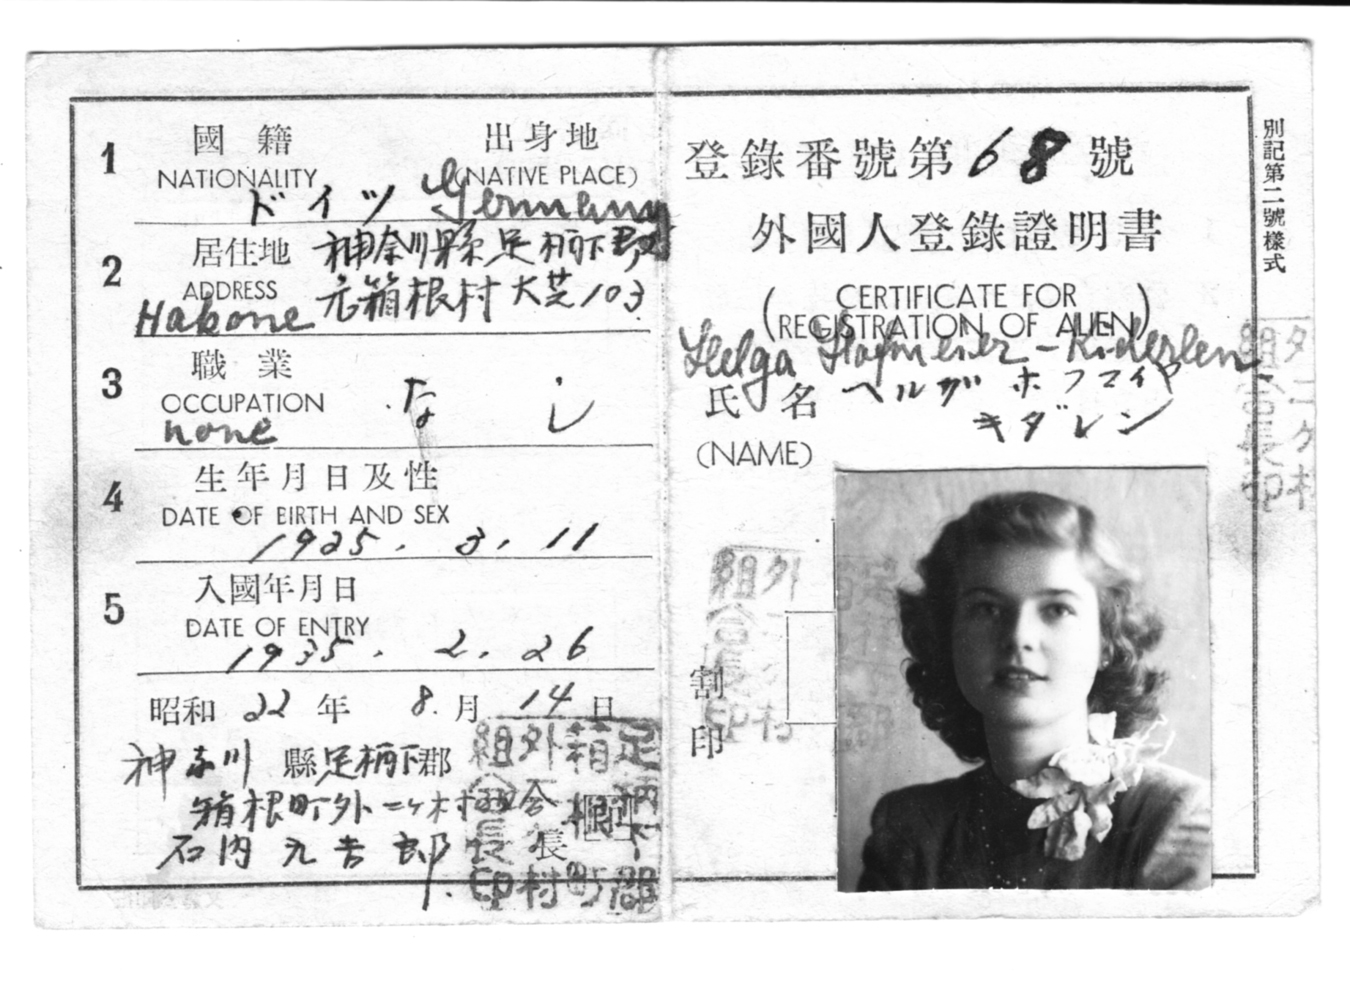 1
國籍 出身地
NATIONALITY (NATIVE PLACE)
ドイツ Germany
2
居住地 神奈川縣足柄下郡
ADDRESS 元箱根村大芝103
Hakone
3
職業
OCCUPATION なし
none
4
生年月日及性
DATE OF BIRTH AND SEX
1925. 3. 11
5
入國年月日
DATE OF ENTRY
1935. 2. 26
昭和22年8.月14日
神奈川縣足柄下郡
箱根町外二ヶ村組合
長
石内九吉郎
足柄下郡
箱根町
外二ヶ村
組合長印
登錄番號第68號
外國人登錄證明書
(CERTIFICATE FOR
REGISTRATION OF ALIEN)
Helga Hofmeier-Kiderlen
氏名 ヘルガ ホフマイヤ
キダレン
(NAME)
割印
外
組合長印
別記第二號樣式
二ケ村
組合長印